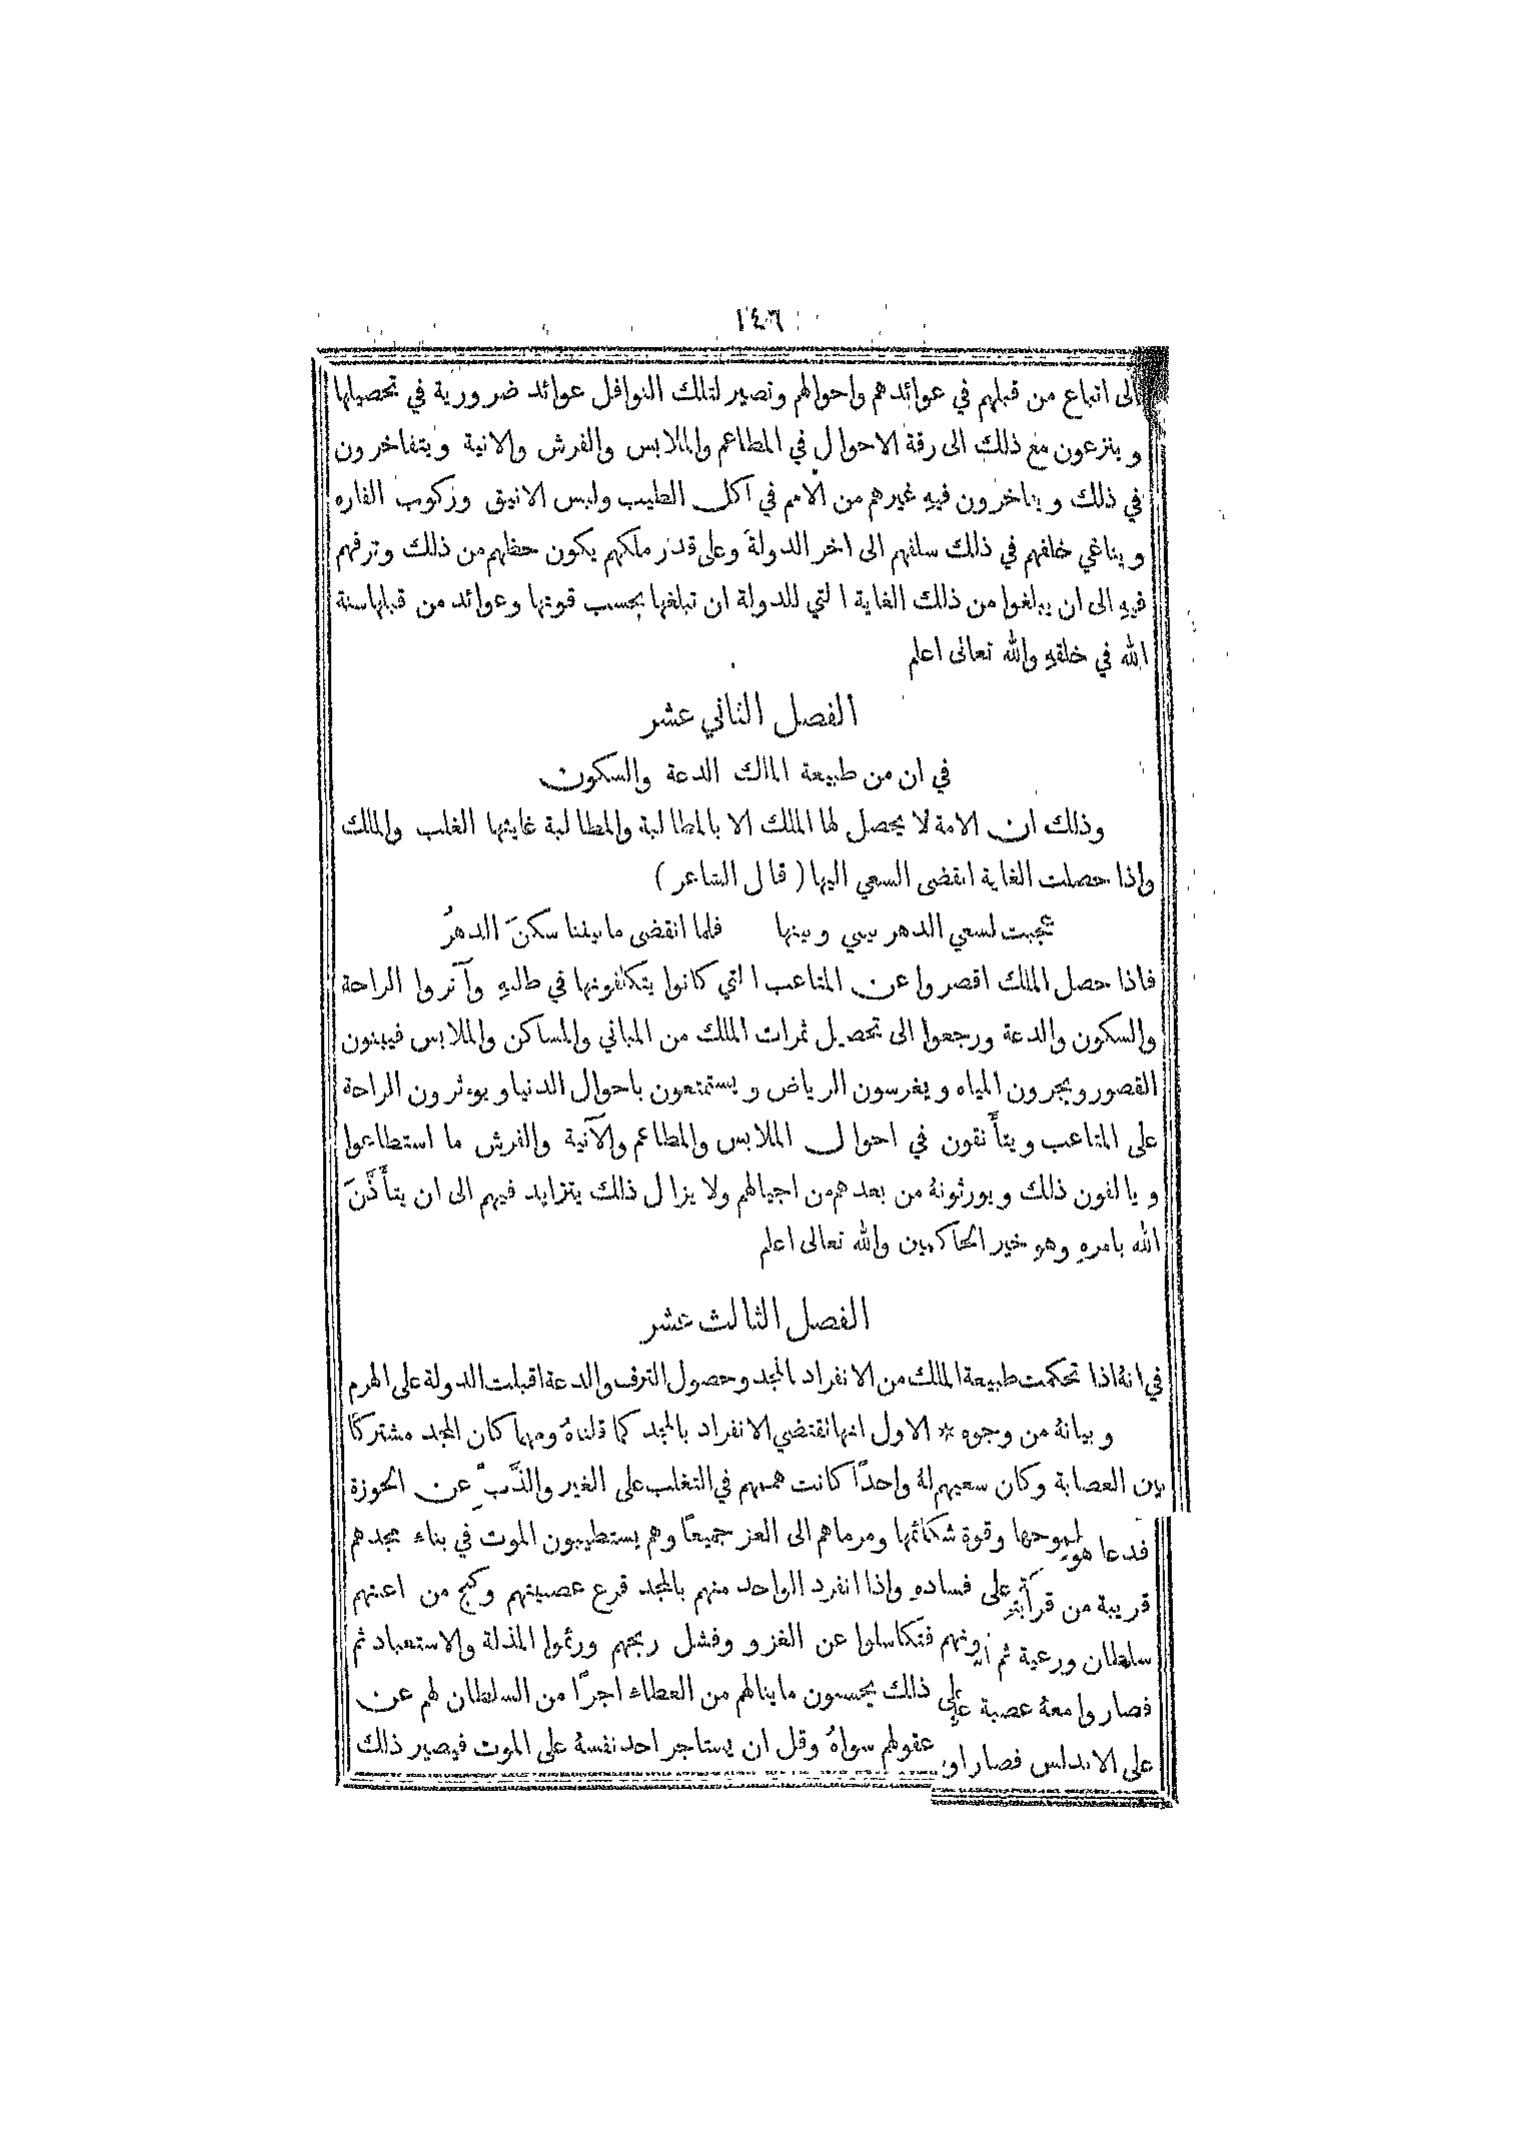 ١٤٦
الى اتباع من قبلهم في عوائدهم واحوالهم وتصير لتلك النوافل عوائد ضرورية في تحصيلها
وينزعون مع ذلك الى رقة الاحوال في المطاعم والملابس والفرش والانية ويتفاخرون
في ذلك ويفاخرون فيهِ غيرهم من الامم في اكل الطيب ولبس الانيق وركوب الفاره
ويناغي خلفهم في ذلك سلفهم الى اخر الدولة وعلى قدر ملكهم يكون حظهم من ذلك وترفهم
فيهِ الى ان يبلغوا من ذلك الغاية التي للدولة ان تبلغها بحسب قوتها وعوائد من قبلها سنة
الله في خلقهِ والله تعالى اعلم
الفصل الثاني عشر
في ان من طبيعة الملك الدعة والسكون
وذلك ان الامة لا يحصل لها الملك الا بالمطالبة والمطالبة غايتها الغلب والملك
واذا حصلت الغاية انقضى السعي اليها ( قال الشاعر )
عجبت لسعي الدهر بيني وبينها فلما انقضى ما بيننا سكنَ الدهرُ
فاذا حصل الملك اقصروا عن المتاعب التي كانوا يتكلفونها في طلبهِ وآثروا الراحة
والسكون والدعة ورجعوا الى تحصيل ثمرات الملك من المباني والمساكن والملابس فيبنون
القصور ويجرون المياه ويغرسون الرياض ويستمتعون باحوال الدنيا ويوءثرون الراحة
على المتاعب ويتأنقون في احوال الملابس والمطاعم والآنية والفرش ما استطاعوا
ويالفون ذلك ويورثونهُ من بعدهم من اجيالهم ولا يزال ذلك يتزايد فيهم الى ان يتأذَّنَ
الله بامرهِ وهو خير الحاكمين والله تعالى اعلم
الفصل الثالث عشر
في انهُ اذا تحكمت طبيعة الملك من الانفراد بالمجد وحصول الترف والدعة اقبلت الدولة على الهرم
وبيانهُ من وجوه * الاول انها تقتضي الانفراد بالمجد كما قلناهُ ومهما كان المجد مشتركًا
بين العصابة وكان سعيهم لهُ واحدًا كانت هممهم في التغلب على الغير والذَّبِّ عن الحوزة
فدعا هو طموحها وقوة شكائمها ومرماهم الى العز جميعًا وهم يستطيبون الموت في بناء مجدهم
قريبة من قرابته على فسادهِ واذا انفرد الواحد منهم بالمجد قرع عصبيتهم وكبح من اعنتهم
سلطان ورعية ثم دونهم فتكاسلوا عن الغزو وفشل ريحهم ورئموا المذلة والاستعباد ثم
فصاروا معهُ عصبة على ذلك يحسبون ما ينالهم من العطاء اجرًا من السلطان لهم عن
على الاندلس فصاراو عقولهم سواهُ وقل ان يستاجر احد نفسهُ على الموت فيصير ذلك